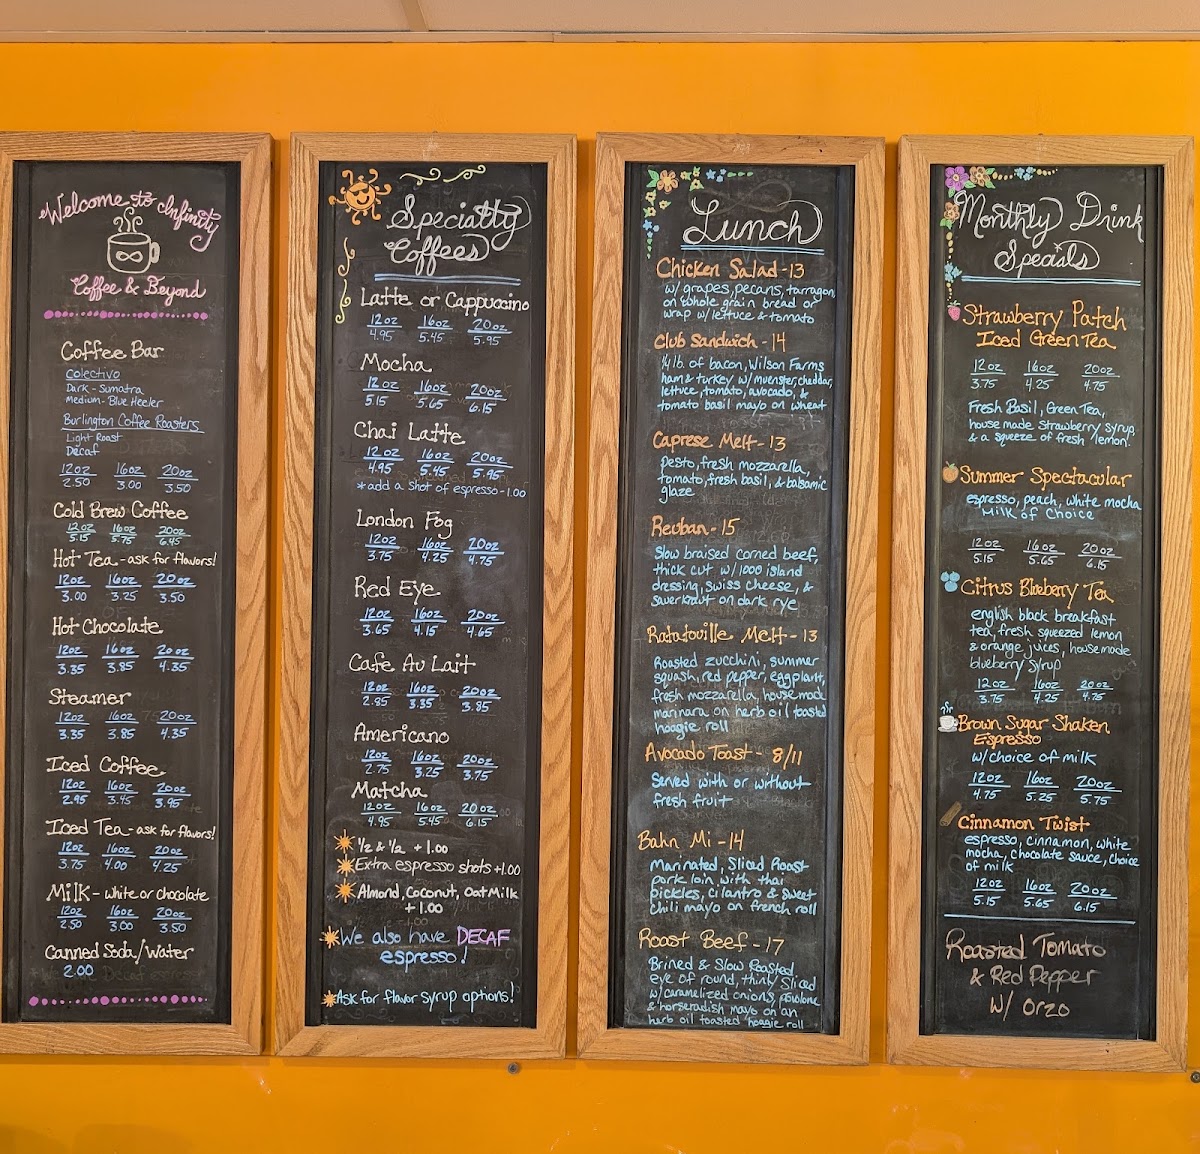 Welcome to Infinity
Coffee & Beyond
Coffee Bar
Colectivo
Dark - Sumatra
Medium - Blue Heeler
Burlington Coffee Roasters
Light Roast
Decaf
12oz 16oz 20oz
2.50 3.00 3.50
Cold Brew Coffee
12oz 16oz 20oz
5.15 5.75 6.45
Hot Tea - ask for flavors!
12oz 16oz 20oz
3.00 3.25 3.50
Hot Chocolate
12oz 16oz 20oz
3.35 3.85 4.35
Steamer
12oz 16oz 20oz
3.35 3.85 4.35
Iced Coffee
12oz 16oz 20oz
2.95 3.45 3.95
Iced Tea - ask for flavors!
12oz 16oz 20oz
3.75 4.00 4.25
Milk - white or chocolate
12oz 16oz 20oz
2.50 3.00 3.50
Canned Soda/Water
2.00
Specialty
Coffees
Latte or Cappuccino
12oz 16oz 20oz
4.95 5.45 5.95
Mocha
12oz 16oz 20oz
5.15 5.65 6.15
Chai Latte
12oz 16oz 20oz
4.95 5.45 5.95
*add a shot of espresso - 1.00
London Fog
12oz 16oz 20oz
3.75 4.25 4.75
Red Eye
12oz 16oz 20oz
3.65 4.15 4.65
Cafe Au Lait
12oz 16oz 20oz
2.85 3.35 3.85
Americano
12oz 16oz 20oz
2.75 3.25 3.75
Matcha
12oz 16oz 20oz
4.95 5.45 6.15
1/2 & 1/2 + 1.00
Extra espresso shots +1.00
Almond, Coconut, Oat Milk
+ 1.00
We also have DECAF
espresso!
Ask for flavor syrup options!
Lunch
Chicken Salad - 13
w/ grapes, pecans, tarragon
on whole grain bread or
wrap w/ lettuce & tomato
Club Sandwich - 14
1/4 lb. of bacon, Wilson Farms
ham & turkey w/ muenster, cheddar,
lettuce, tomato, avocado, &
tomato basil mayo on wheat
Caprese Melt - 13
pesto, fresh mozzarella,
tomato, fresh basil, & balsamic
glaze
Reuban - 15
Slow braised corned beef,
thick cut w/ 1000 island
dressing, swiss cheese, &
sauerkraut on dark rye
Ratatouille Melt - 13
Roasted zucchini, summer
squash, red pepper, eggplant,
fresh mozzarella, house made
marinara on herb oil toasted
hoagie roll
Avocado Toast - 8/11
Served with or without
fresh fruit
Bahn Mi - 14
Marinated, Sliced Roast
pork loin with thai
pickles, cilantro & sweet
chili mayo on french roll
Roast Beef - 17
Brined & Slow Roasted
eye of round, thinly sliced
w/ caramelized onions, provolone
& horseradish mayo on an
herb oil toasted hoagie roll
Monthly Drink
Specials
Strawberry Patch
Iced Green Tea
12oz 16oz 20oz
3.75 4.25 4.75
Fresh Basil, Green Tea,
house made strawberry syrup
& a squeeze of fresh lemon.
Summer Spectacular
espresso, peach, white mocha
Milk of Choice
12oz 16oz 20oz
5.15 5.65 6.15
Citrus Blueberry Tea
english black breakfast
tea, fresh squeezed lemon
& orange juices, housemade
blueberry syrup
12oz 16oz 20oz
3.75 4.25 4.75
Brown Sugar Shaken
Espresso
w/ choice of milk
12oz 16oz 20oz
4.75 5.25 5.75
Cinnamon Twist
espresso, cinnamon, white
mocha, chocolate sauce, choice
of milk
12oz 16oz 20oz
5.15 5.65 6.15
Roasted Tomato
& Red Pepper
w/ orzo